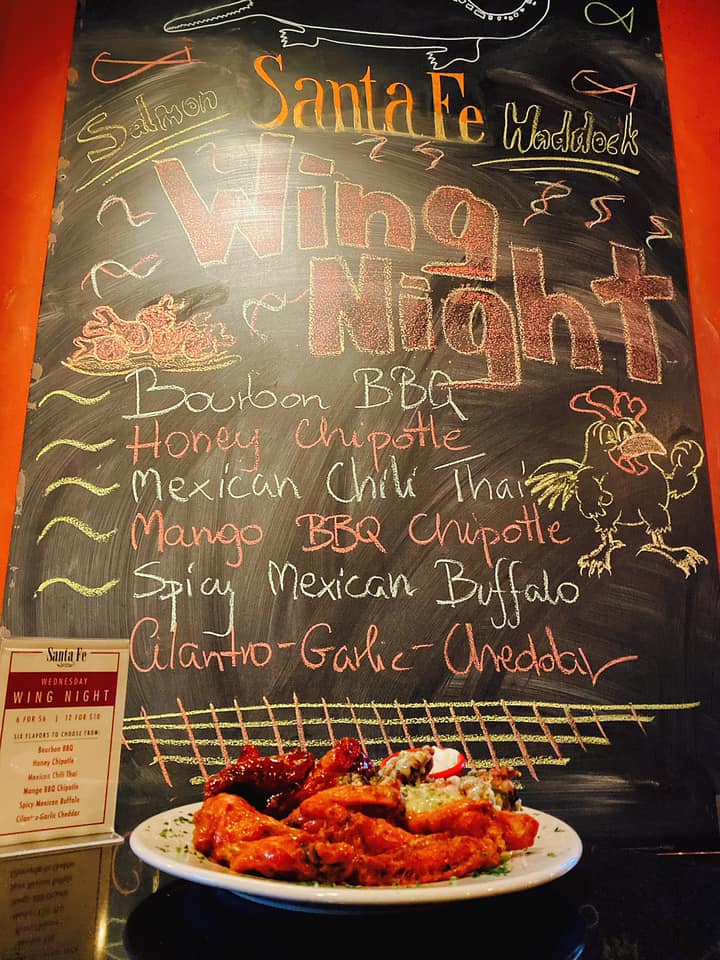 Santa Fe
Salmon
Haddock
Wing
Night
Bourbon BBQ
Honey Chipotle
Mexican Chili Thai
Mango BBQ Chipotle
Spicy Mexican Buffalo
Cilantro-Garlic-Cheddar
Santa Fe
WEDNESDAY
WING NIGHT
6 FOR $6 | 12 FOR $10
SIX FLAVORS TO CHOOSE FROM
Bourbon BBQ
Honey Chipotle
Mexican Chili Thai
Mango BBQ Chipotle
Spicy Mexican Buffalo
Cilantro-Garlic Cheddar